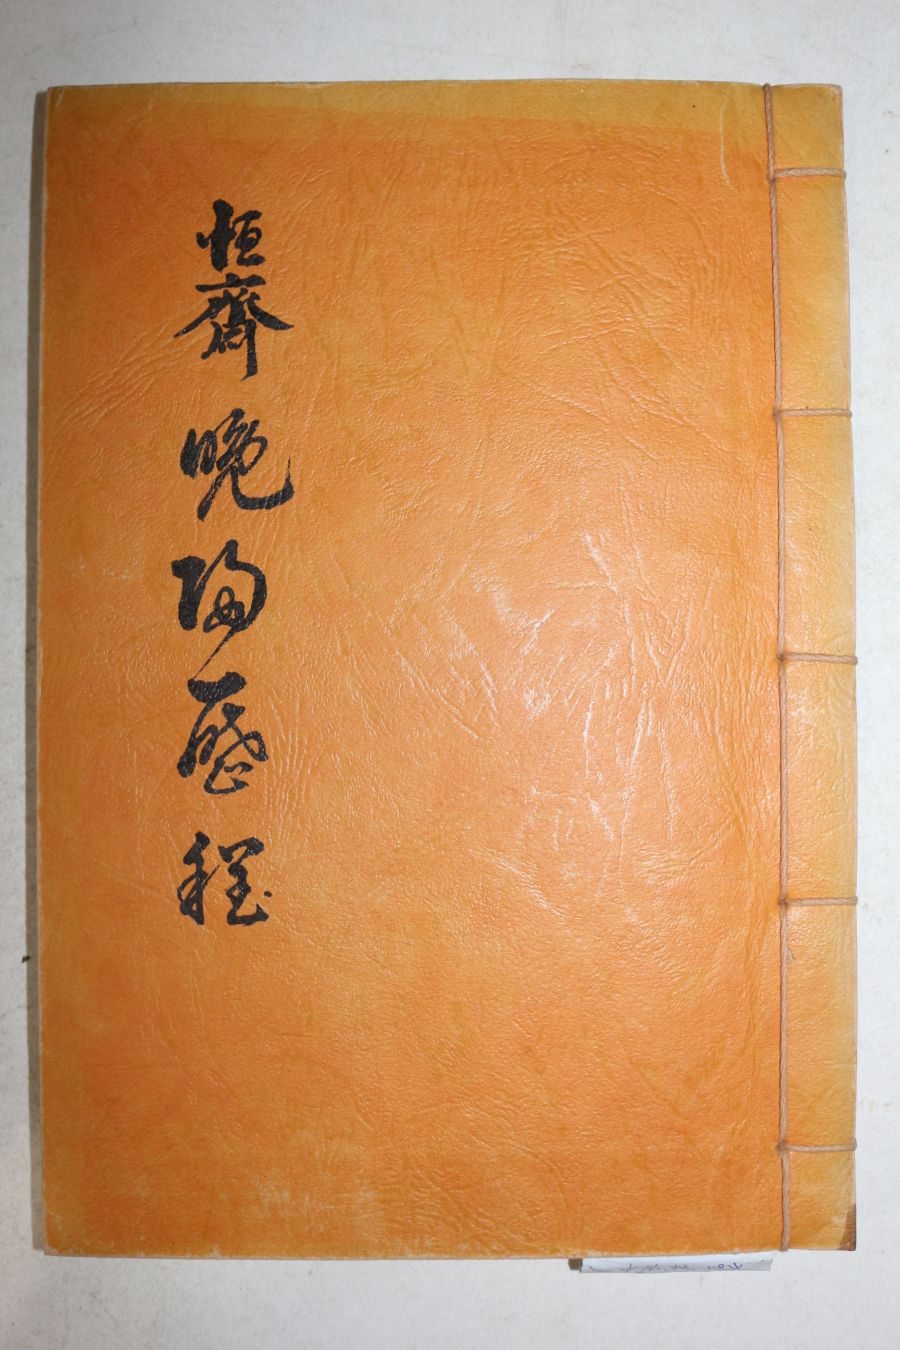 恒齋晩陽歷程